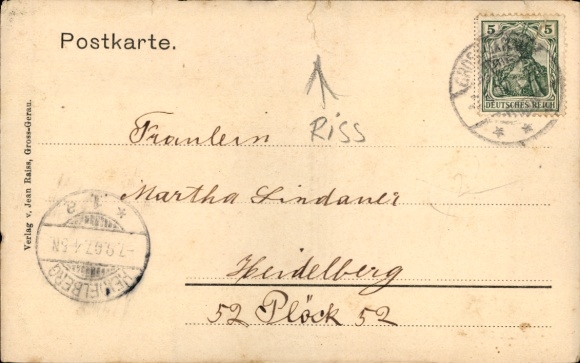 Postkarte.
5 5
DEUTSCHES REICH
RISS
Fräulein
Martha Lindauer
Heidelberg
52 Plöck 52
Verlag v. Jean Raiss, Gross-Gerau.
HEIDELBERG
-7.9.07.4-5N